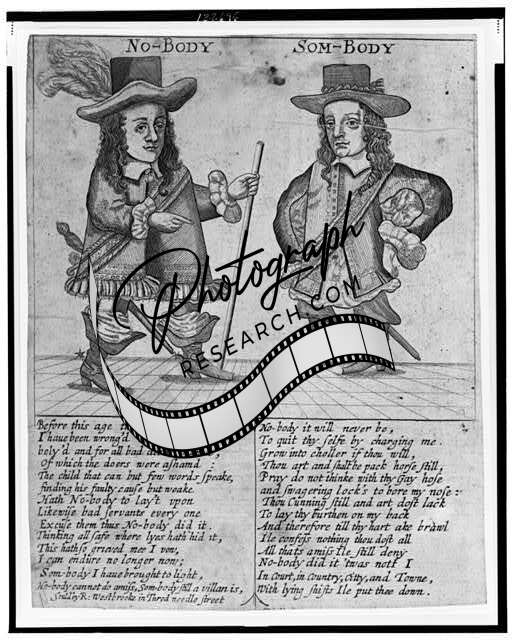 No-Body
Som-Body
Photograph
RESEARCH.COM
Before this age
I haue been wrong'd
bely'd and for all bad
Of which the doers were ashamd :
The child that can but few words speake,
finding his faulty cause but weake.
Hath No-body to lay't upon
Likewise bad servants every one
Excuse them thus No-body did it,
Thinking all safe where lyes hath hid it,
This hath so grieved mee I vow,
I can endure no longer now;
Som-body I haue brought to light,
No-body cannot do amiss, Som-body still a villan is,
Sould by R: Westbrooke in Thred needle street
No-body it will never be,
To quit thy selfe by charging me.
Grow into choller if thou will,
Thou art and shalt be pack horse still,
Pray do not thinke with thy Gay hose
and swagering locks to bore my nose :
Thou Cunning still and art dost lack
To lay thy burthen on my back
And therefore till thy hart ake brawl
Ile confess nothing thou dost all
All thats amiss Ile still deny
No-body did it 'twas nott I
In Court, in Country, Citty, and Towne,
With lying shifts Ile put thee down.